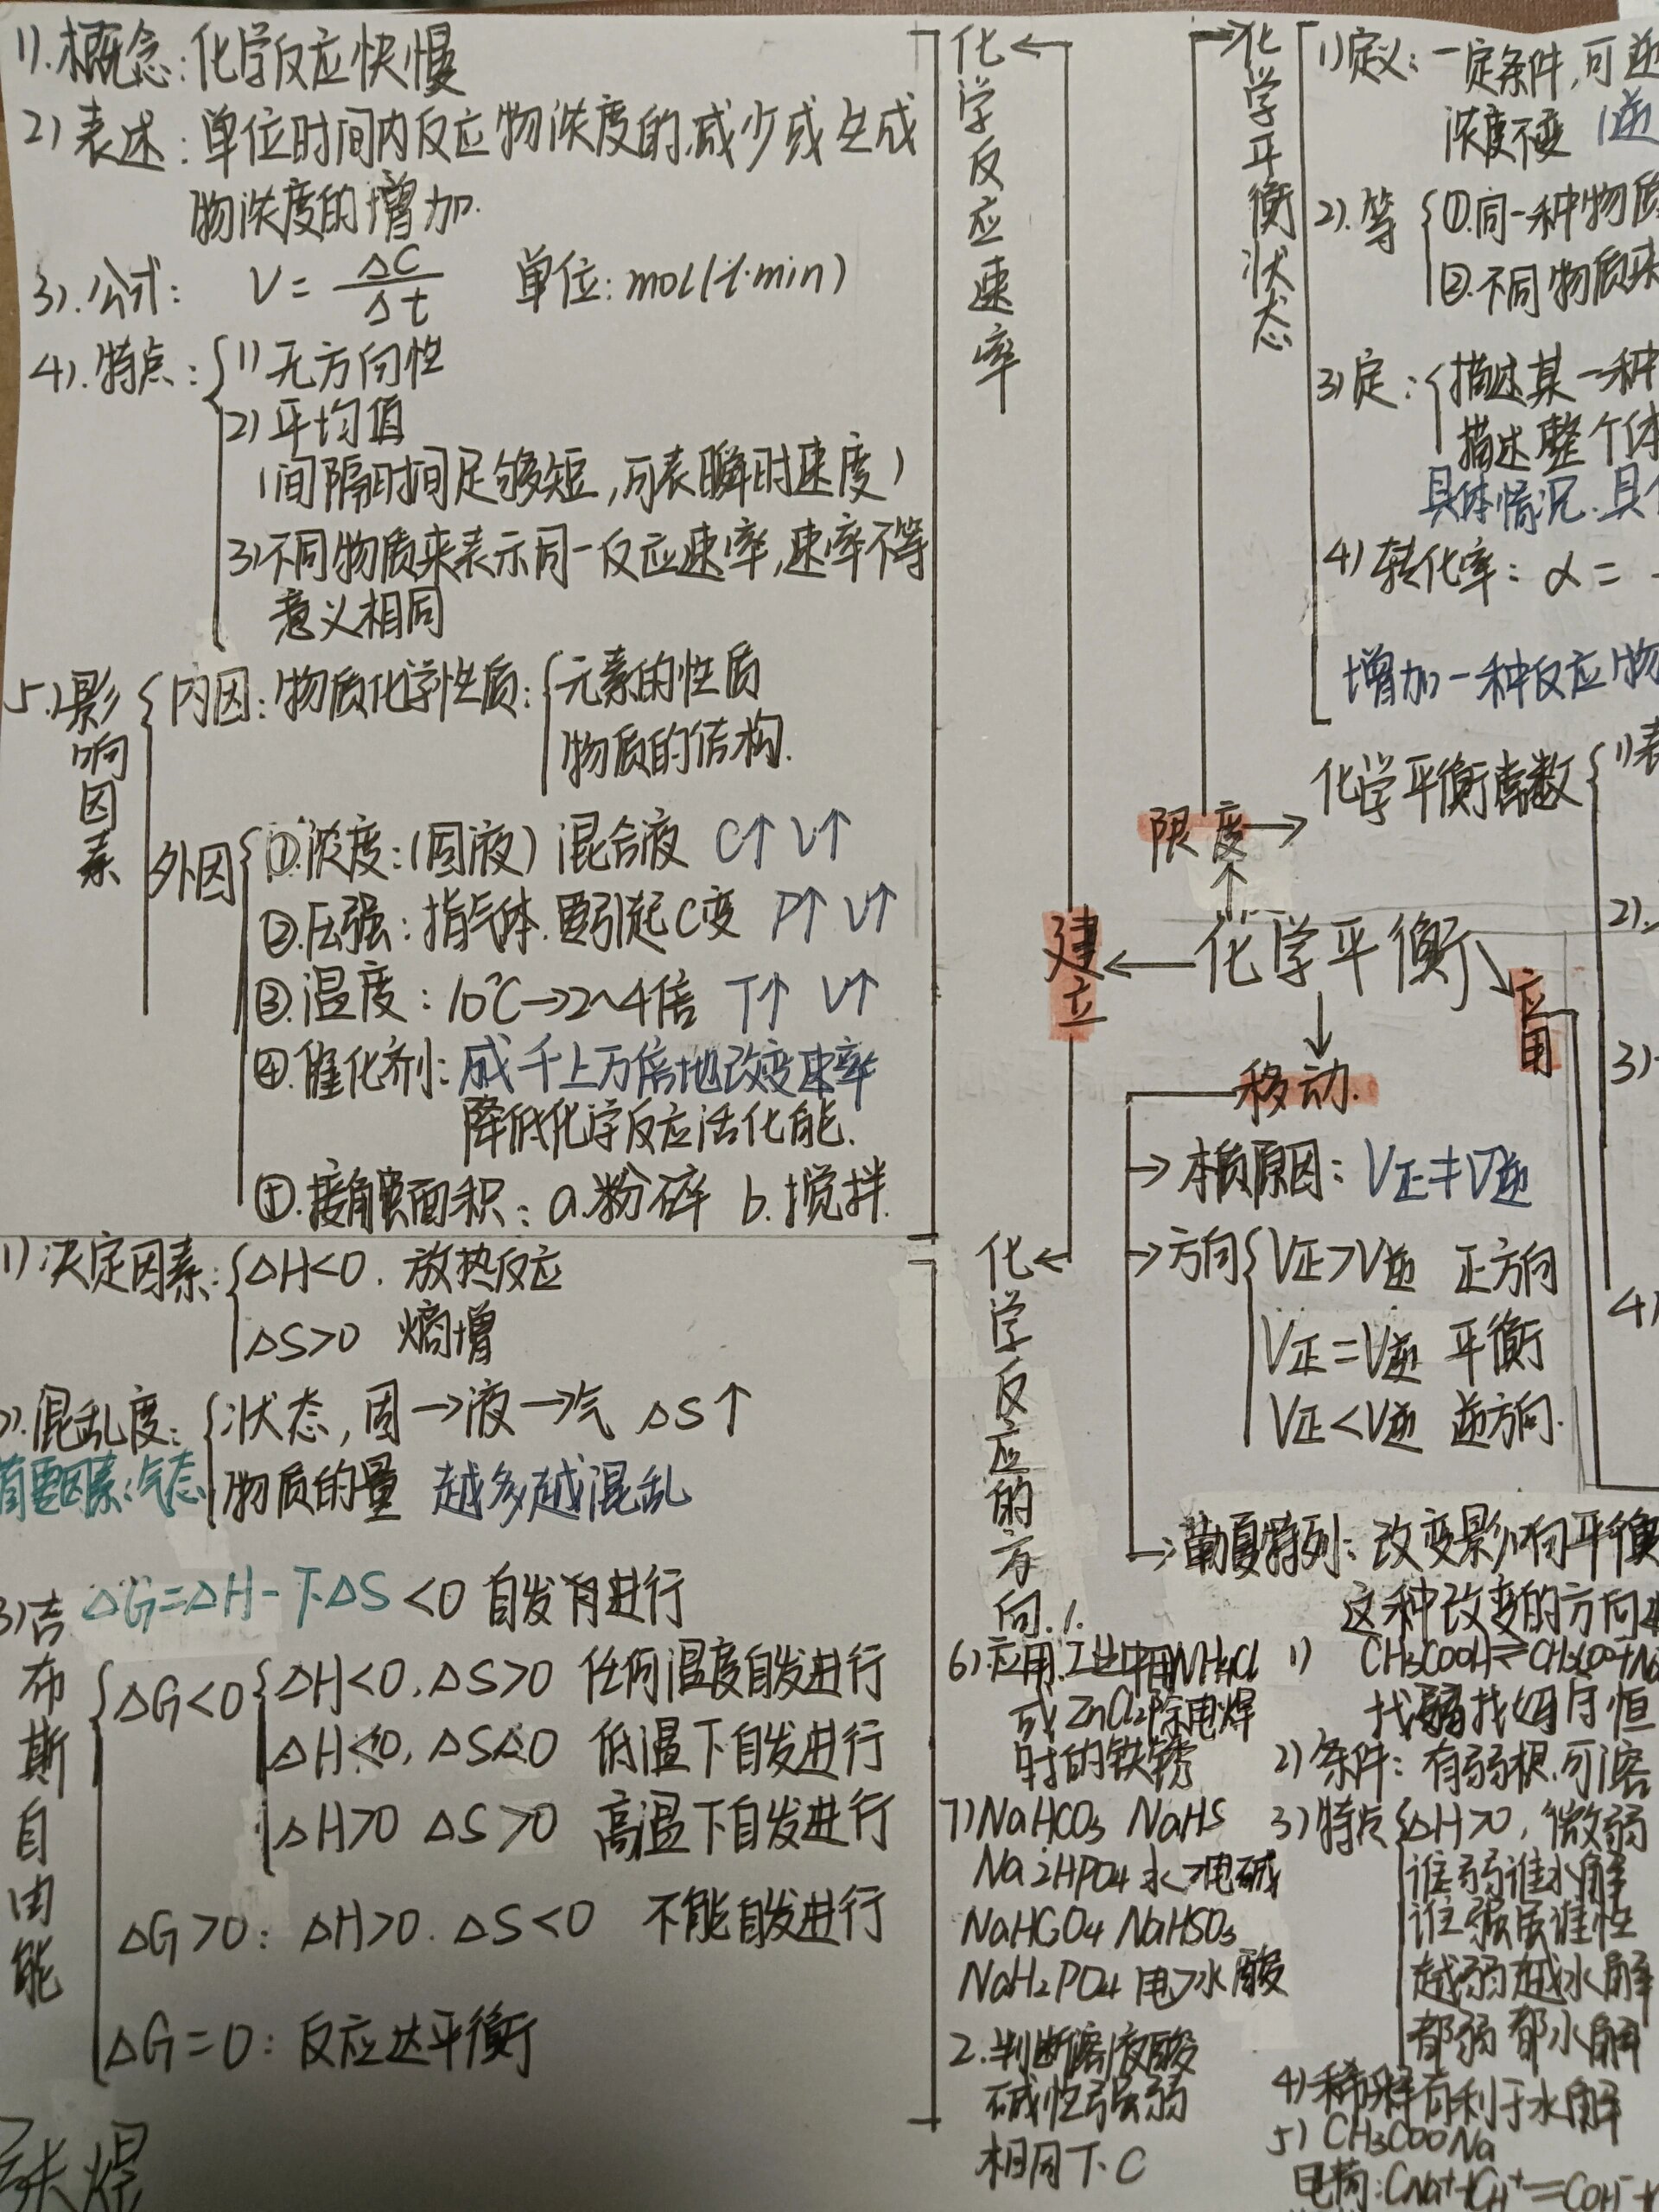 1).概念:化学反应快慢
2)表述:单位时间内反应物浓度的减少或生成
物浓度的增加.
3).公式: V=ΔC/Δt 单位:mol/(L·min)
4).特点:1)无方向性
2)平均值
(间隔时间足够短,可表瞬时速度)
3)不同物质来表示同一反应速率,速率不等
意义相同
5).影响因素
内因:物质化学性质:元素的性质
物质的结构.
外因
①.浓度:(固液)混合液 C↑ V↑
②.压强:指气体.要引起C变 P↑ V↑
③.温度:10℃→2~4倍 T↑ V↑
④.催化剂:成千上万倍地改变速率
降低化学反应活化能.
⑤.接触面积:a.粉碎 b.搅拌.
化学反应速率
1)决定因素:ΔH<0.放热反应
ΔS>0 熵增
2).混乱度:状态,固→液→气 ΔS↑
首要因素:气态 物质的量 越多越混乱
3)吉布斯自由能
ΔG=ΔH-T·ΔS<0 自发进行
ΔG<0
ΔH<0.ΔS>0 任何温度自发进行
ΔH<0,ΔS<0 低温下自发进行
ΔH>0 ΔS>0 高温下自发进行
ΔG>0: ΔH>0.ΔS<0 不能自发进行
ΔG=0:反应达平衡
化学反应的方向.
化学平衡状态
1)定义:一定条件,可逆
浓度不变
2).等 ①.同一种物质
②.不同物质来
3)定:描述某一种
描述整个体
具体情况.具
4)转化率:α=
增加一种反应物
化学平衡常数
1)表
2).
3)
4)
限度
建立
化学平衡
应用
移动.
本质原因:V正≠V逆
方向 V正>V逆 正方向
V正=V逆 平衡
V正<V逆 逆方向.
勒夏特列:改变影响平衡
这种改变的方向
6)应用:工业中用NH4Cl
或ZnCl2除电焊
时的铁锈
7)NaHCO3 NaHS
Na2HPO4 水>电碱
NaHC2O4 NaHSO3
NaH2PO4 电>水 酸
2.判断溶液酸
碱性强弱
相同下.C
1) CH3COOH⇌CH3COO
找弱找四月恒
2)条件:有弱根.可溶
3)特点 ΔH>0,微弱
谁弱谁水解
谁强显谁性
越弱越水解
都弱都水解
4)稀释有利于水解
5)CH3COONa
电荷:CNa++CH+=COH-+